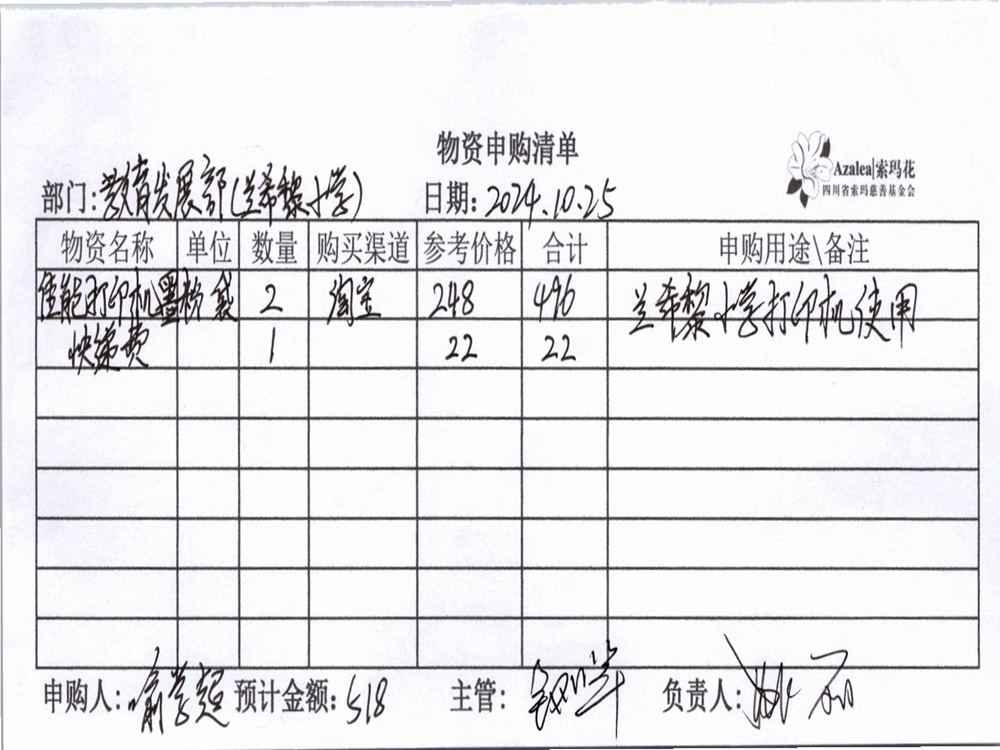 物资申购清单
Azalea|索玛花
四川省索玛慈善基金会
部门:教育发展部(兰希黎小学) 日期:2024.10.25
物资名称 单位 数量 购买渠道 参考价格 合计 申购用途\备注
佳能打印机墨粉 袋 2 淘宝 248 496 兰希黎小学打印机使用
快递费 1 22 22
申购人:喻学超 预计金额:518 主管: 负责人: